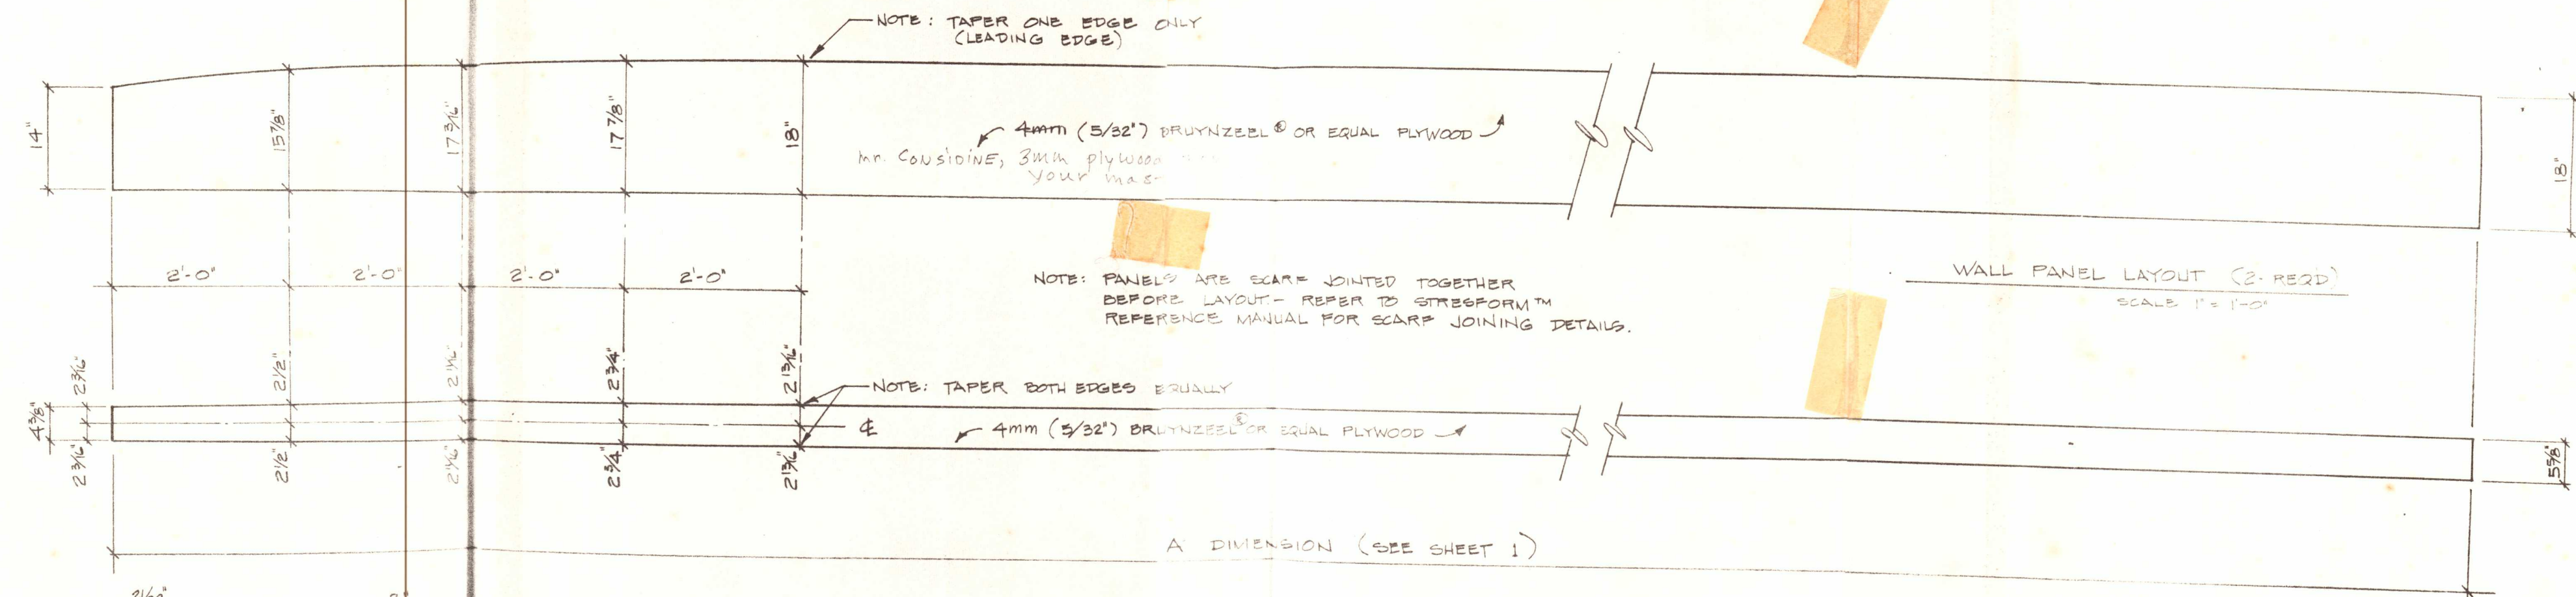 NOTE: TAPER ONE EDGE ONLY
(LEADING EDGE)
14"
15 7/8"
17 3/16"
17 7/8"
18"
4mm (5/32") BRUYNZEEL® OR EQUAL PLYWOOD
Mr. CONSIDINE, 3mm plywood
your mas-
18"
2'-0"
2'-0"
2'-0"
2'-0"
NOTE: PANELS ARE SCARF JOINTED TOGETHER
BEFORE LAYOUT - REFER TO STRESFORM™
REFERENCE MANUAL FOR SCARF JOINING DETAILS.
WALL PANEL LAYOUT (2-REQD)
SCALE 1" = 1'-0"
4 3/8"
2 3/16"
2 1/2"
2 3/4"
2 13/16"
NOTE: TAPER BOTH EDGES EQUALLY
℄
4mm (5/32") BRUYNZEEL® OR EQUAL PLYWOOD
2 3/16"
2 1/2"
2 3/4"
2 13/16"
5 5/8"
A DIMENSION (SEE SHEET 1)